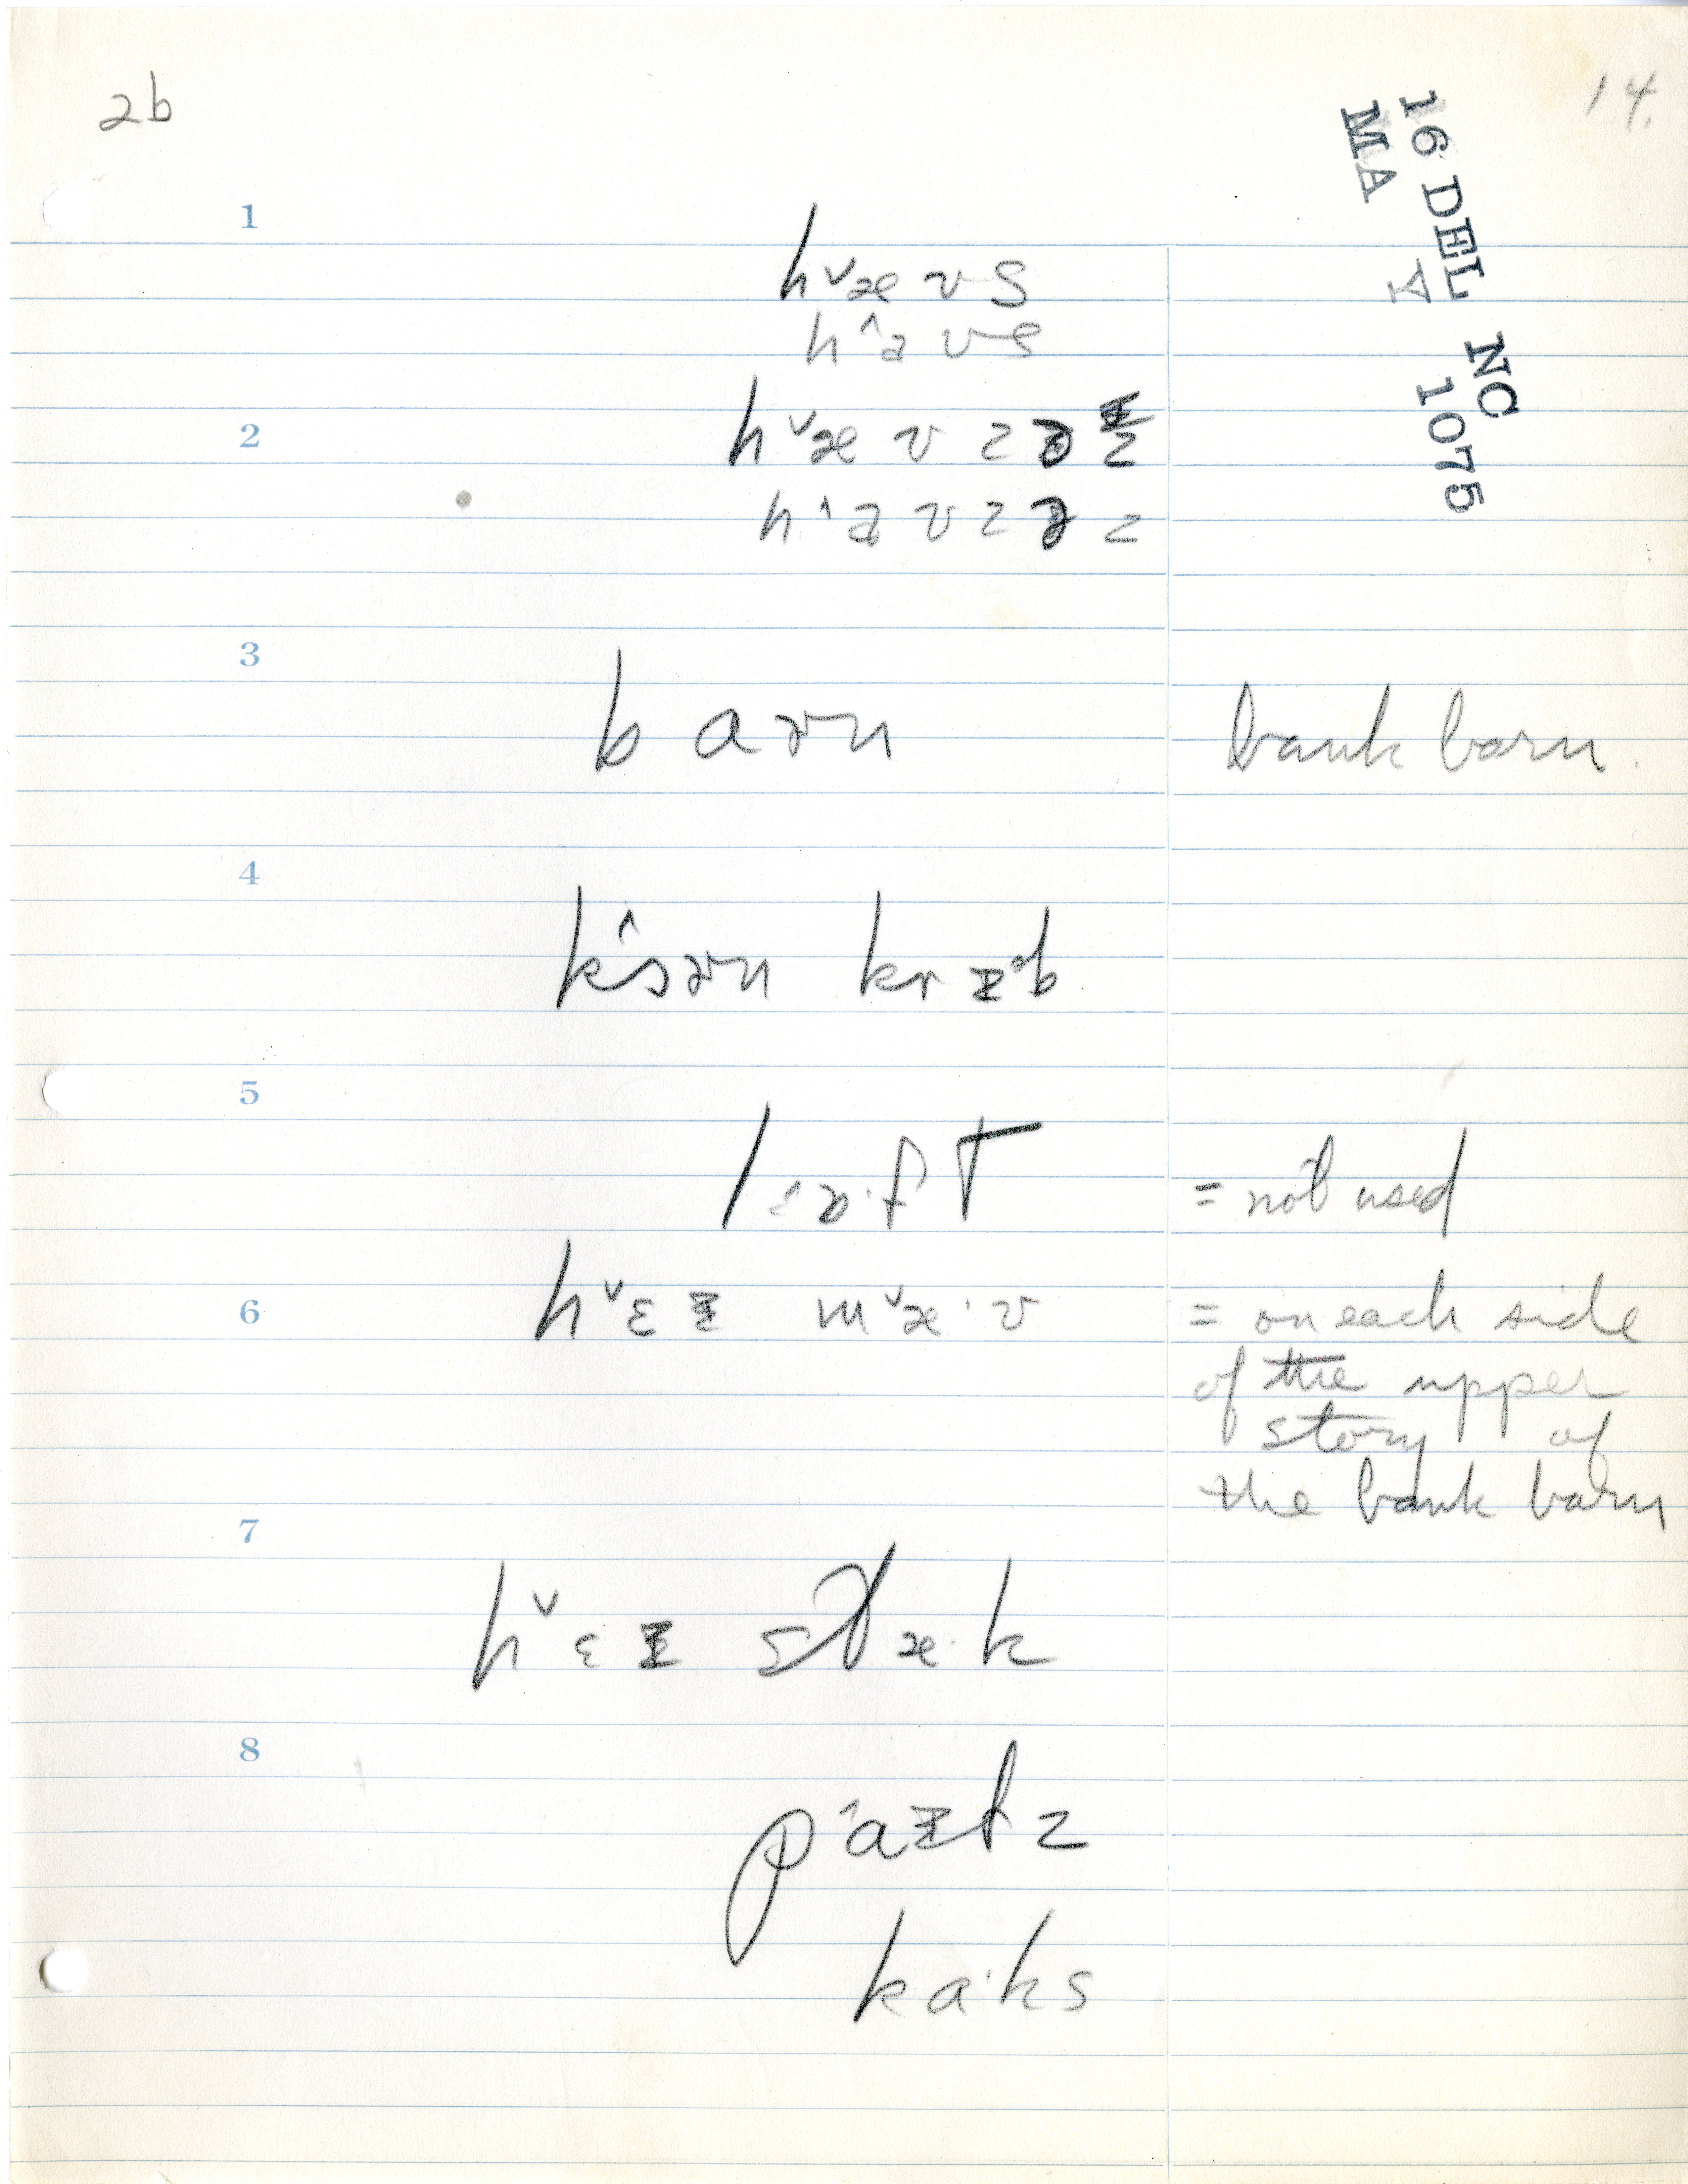 2b
14.
16 DEL NC
MA Y 1075
1
hˇæʊs
hˆaʊs
2
hˇæʊzəz
hˆaʊzəz
3
baɚn bank barn
4
kˆɔɚn krɪᵊb
5
lˆɔ·fT = not used
6
hˇɛɪ mˇæ·ʊ = on each side
of the upper
story of
the bank barn
7
hˇɛɪ stæ·k
8
pˆaɪlz
ka·ks